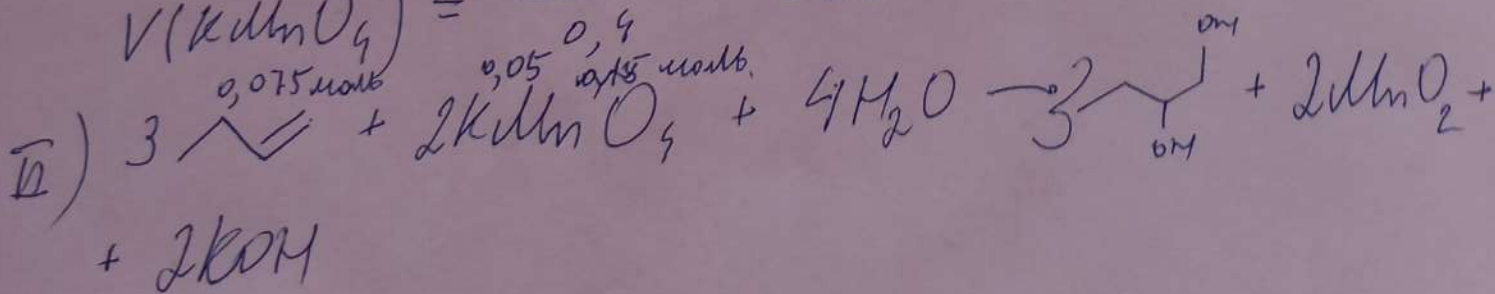 V(KMnO4) =
0,4
0,075 моль 0,05 моль.
II) 3 + 2KMnO4 + 4H2O → 3 OH OH + 2MnO2 +
+ 2KOH